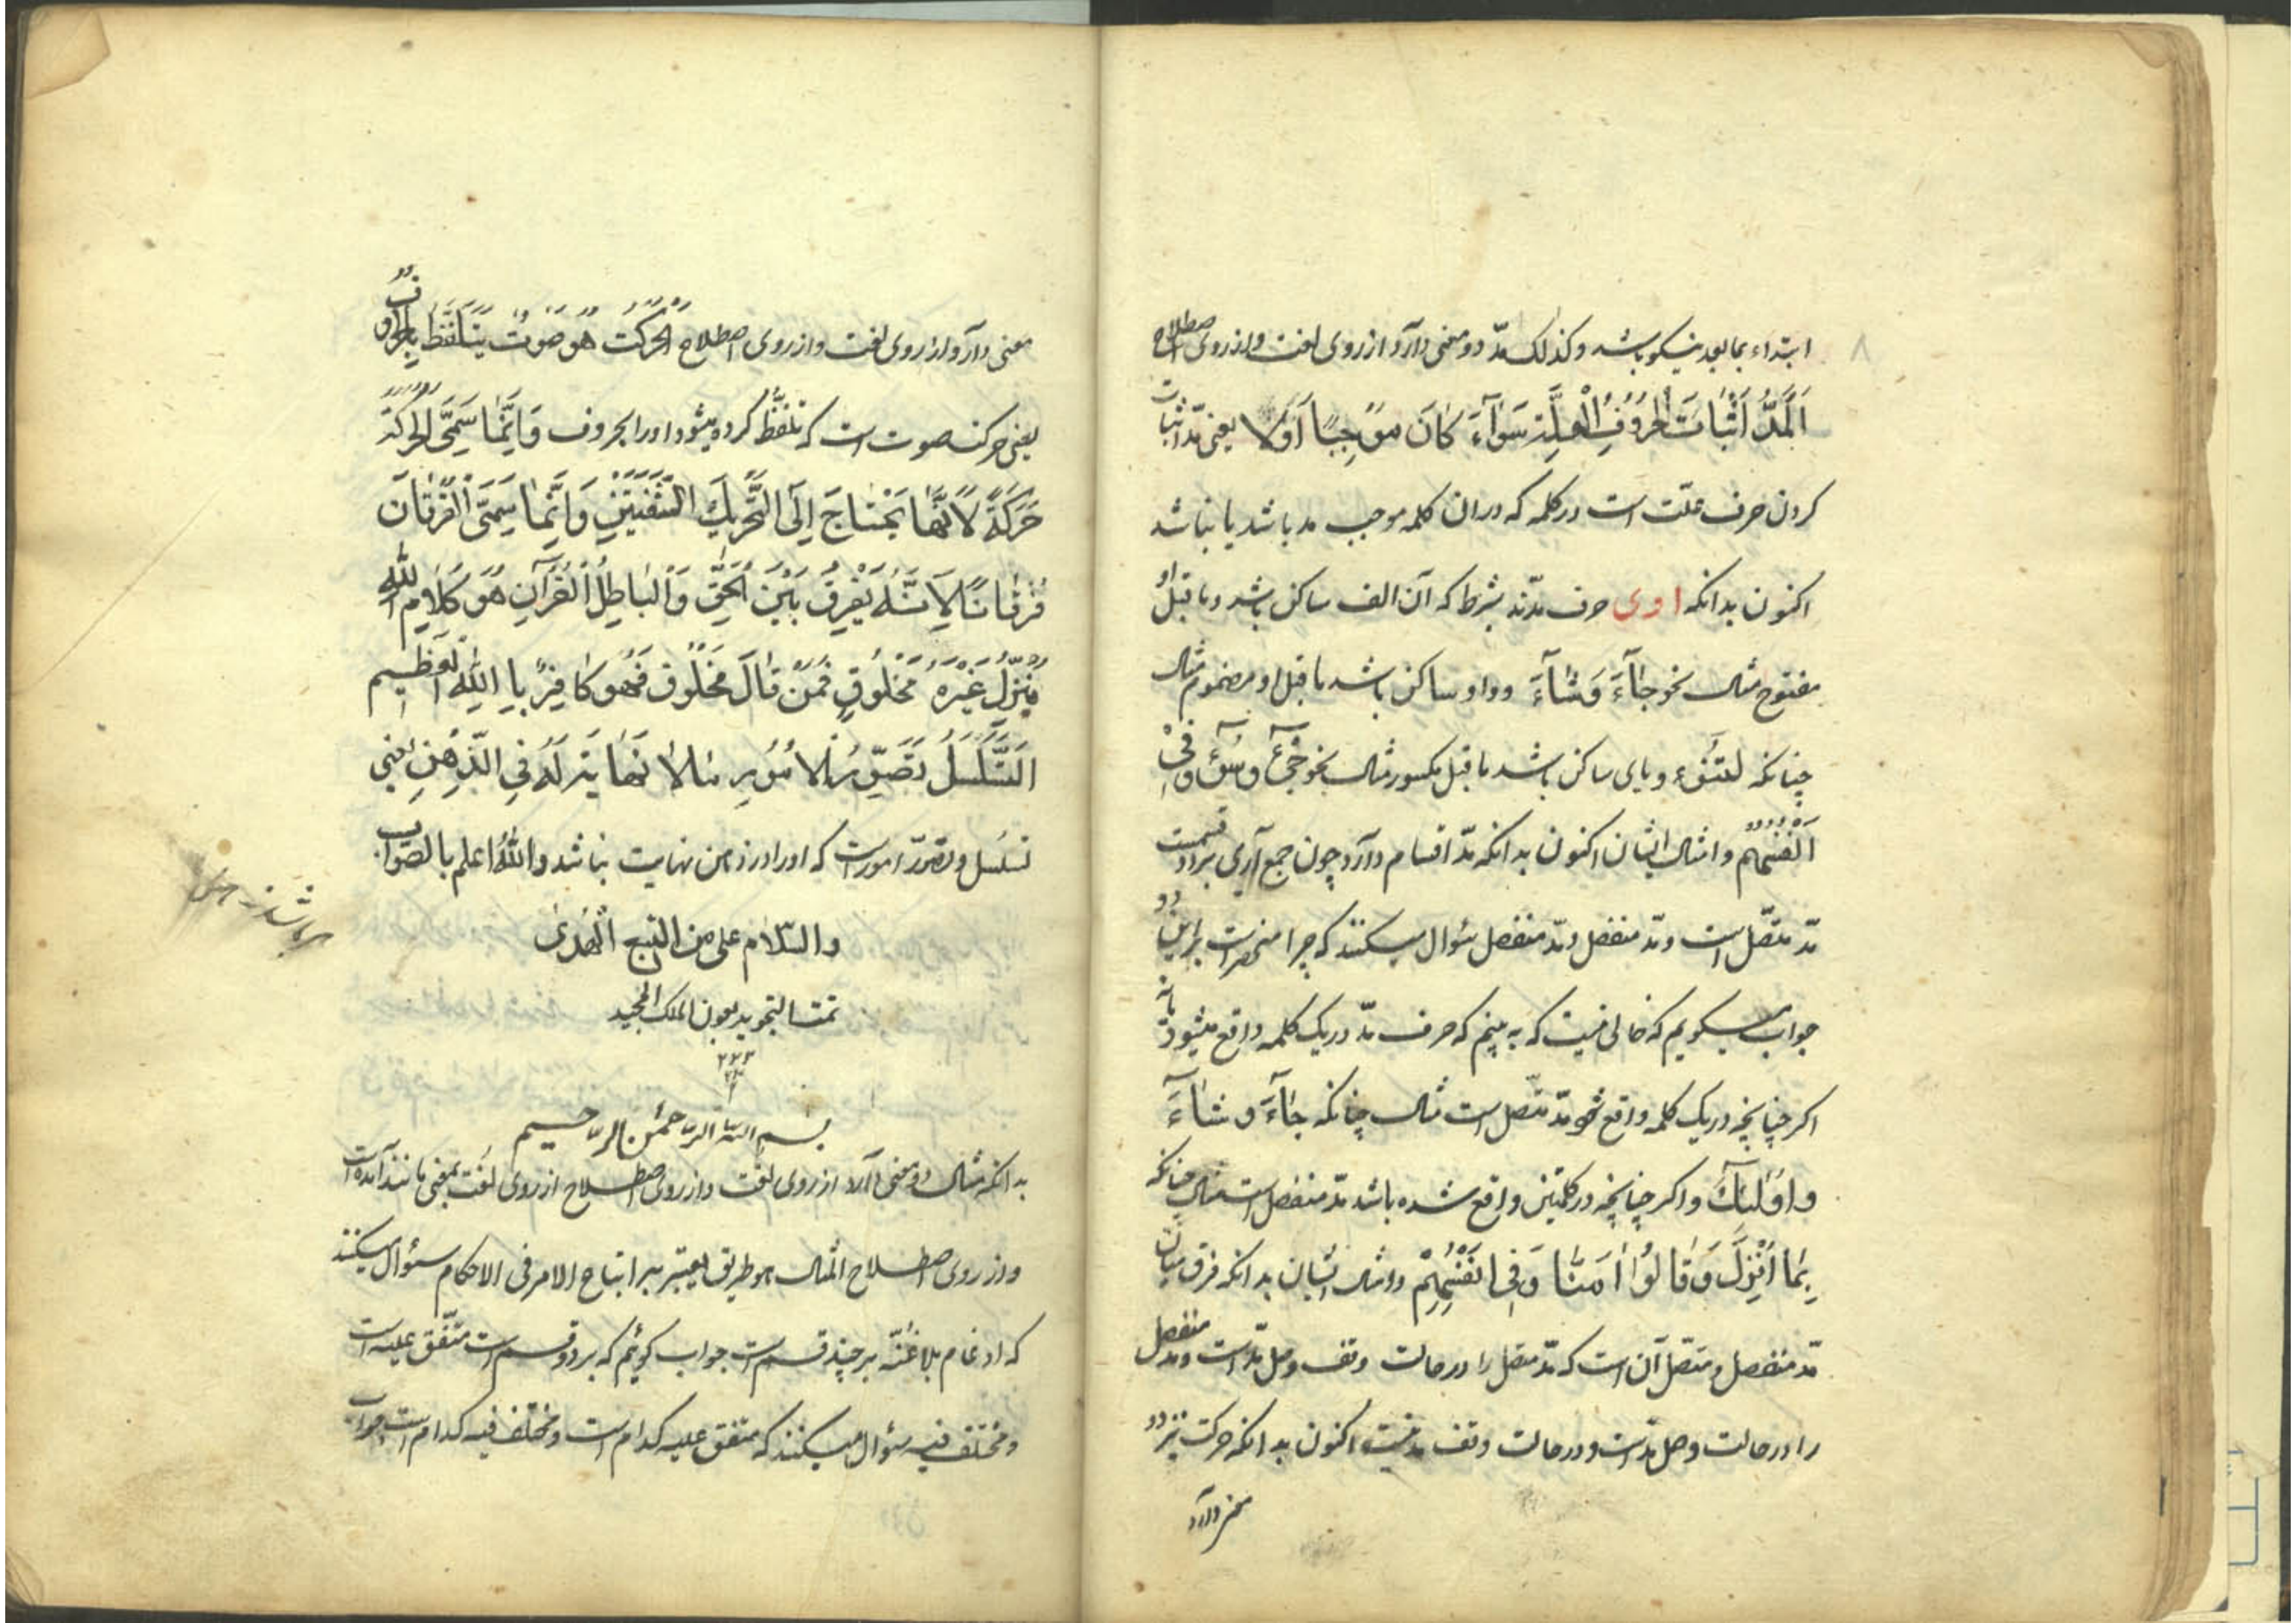 ۸
ابتداء بمابعد نیکو باشد وکذلک مدّ دو معنی دارد از روی لغت واز روی اصطلاح
اَلْمَدُّ اَثْبَاتَ الْحُرُوْفِ الْعِلَّةِ سَوَآءَ کَانَ مُوْجِبًا اَوْلَا یعنی مدّ اثبات
کردن حرف علّت است درکلمه که دران کلمه موجب مد باشد یا نباشد
اکنون بدانکه ا و ی حرف مدّند بشرط که آن الف ساکن باشد وماقبل او
مفتوح مثال نحو جَآءَ وَشَآءَ وواو ساکن باشد ماقبل او مضموم مثال
چنانکه لَتَنُوْٓءُ ویای ساکن باشد ماقبل مکسور مثال نحو جِیْٓءَ وسُوْٓءَ وَفِیْٓ
اَنْفُسِهِمْ وامثال ایشان اکنون بدانکه مدّ اقسام دارد چون جمع آری بردو قسمت
مدّ متّصل است ومدّ منفصل ومدّ منفصل سؤال میکنند که چرا منحصر است براین دو
جواب میگویم که خالی نیست که به بینم که حرف مدّ دریک کلمه واقع میشود یا نه
اکر چنانچه دریک کلمه واقع شود مدّ متّصل است مثال چنانکه جَآءَ و شَآءَ
واُولٰٓئِکَ واکر چنانچه درکلمتین واقع شده باشد مدّ منفصل است مثال چنانکه
بِمَا اُنْزِلَ وَقَالُوْا اٰمَنَّا وَفِی اَنْفُسِهِمْ وامثال ایشان بدانکه فرق میان
مدّ منفصل ومتصل آن است که مدّ متصل را درحالت وقف ووصل مدّ است ومدّ منفصل
را درحالت وصل مدّست ودرحالت وقف مد نیست اکنون بدانکه حرکت نیز دو
معنی دارد
معنی دارد از روی لغت واز روی اصطلاح الْحَرَکَتُ هُوَ صَوْتٌ یَتَلَفَّظُ بِالْحُرُوْفِ
یعنی حرکت صوت است که تلفّظ کرده میشود اورا بحروف وَاِنَّمَا سَمِّیَ الْحَرَکَةُ
حَرَکَةً لِاَنَّهَا یَحْتَاجَ اِلَی التَّحْرِیْکِ الشَّفَتَیْنِ وَاِنَّمَا سَمِّیَ الْفُرْقَانَ
فُرْقَانًا لِاَنَّهُ یَفْرِقُ بَیْنَ الْحَقِّ وَالْبَاطِلُ الْقُرْآنِ هُوَ کَلَامِ اللّٰهِ
مُنَزِّلٌ غَیْرَهُ مَخْلُوْقٍ فَمَنْ قَالَ مَخْلُوْق فَهُوَ کَافِرٌ بِا اللّٰهِ الْعَظِیْم
التَّسَلْسُلُ تَصَوُّرُ الاُمُوْرِ مَالَا نَهَایَتَ لَهُ فِی الذِّهْنِ یعنی
تسلسل وتصوّر امور است که اورا درذهن نهایت نباشد واللّٰهُ اعلم بالصّواب
والسّلام علی من اتبع الْهُدٰی
تمت التجوید بعون الملک المجید
بسم اللّٰه الرّحمٰن الرّحیم
بدانکه مثال دو معنی دارد از روی لغت واز روی اصطلاح از روی لغت بمعنی مانند آمده است
واز روی اصطلاح المثال هو طریق یعتبر به اتباع الامر فی الاحکام سؤال میکنند
که ادغام بلا غنّه بر چند قسم است جواب کوئیم که بردو قسم است متّفق علیه است
ومختلف فیه سؤال میکنند که متفق علیه کدام است ومختلف فیه کدام است جواب